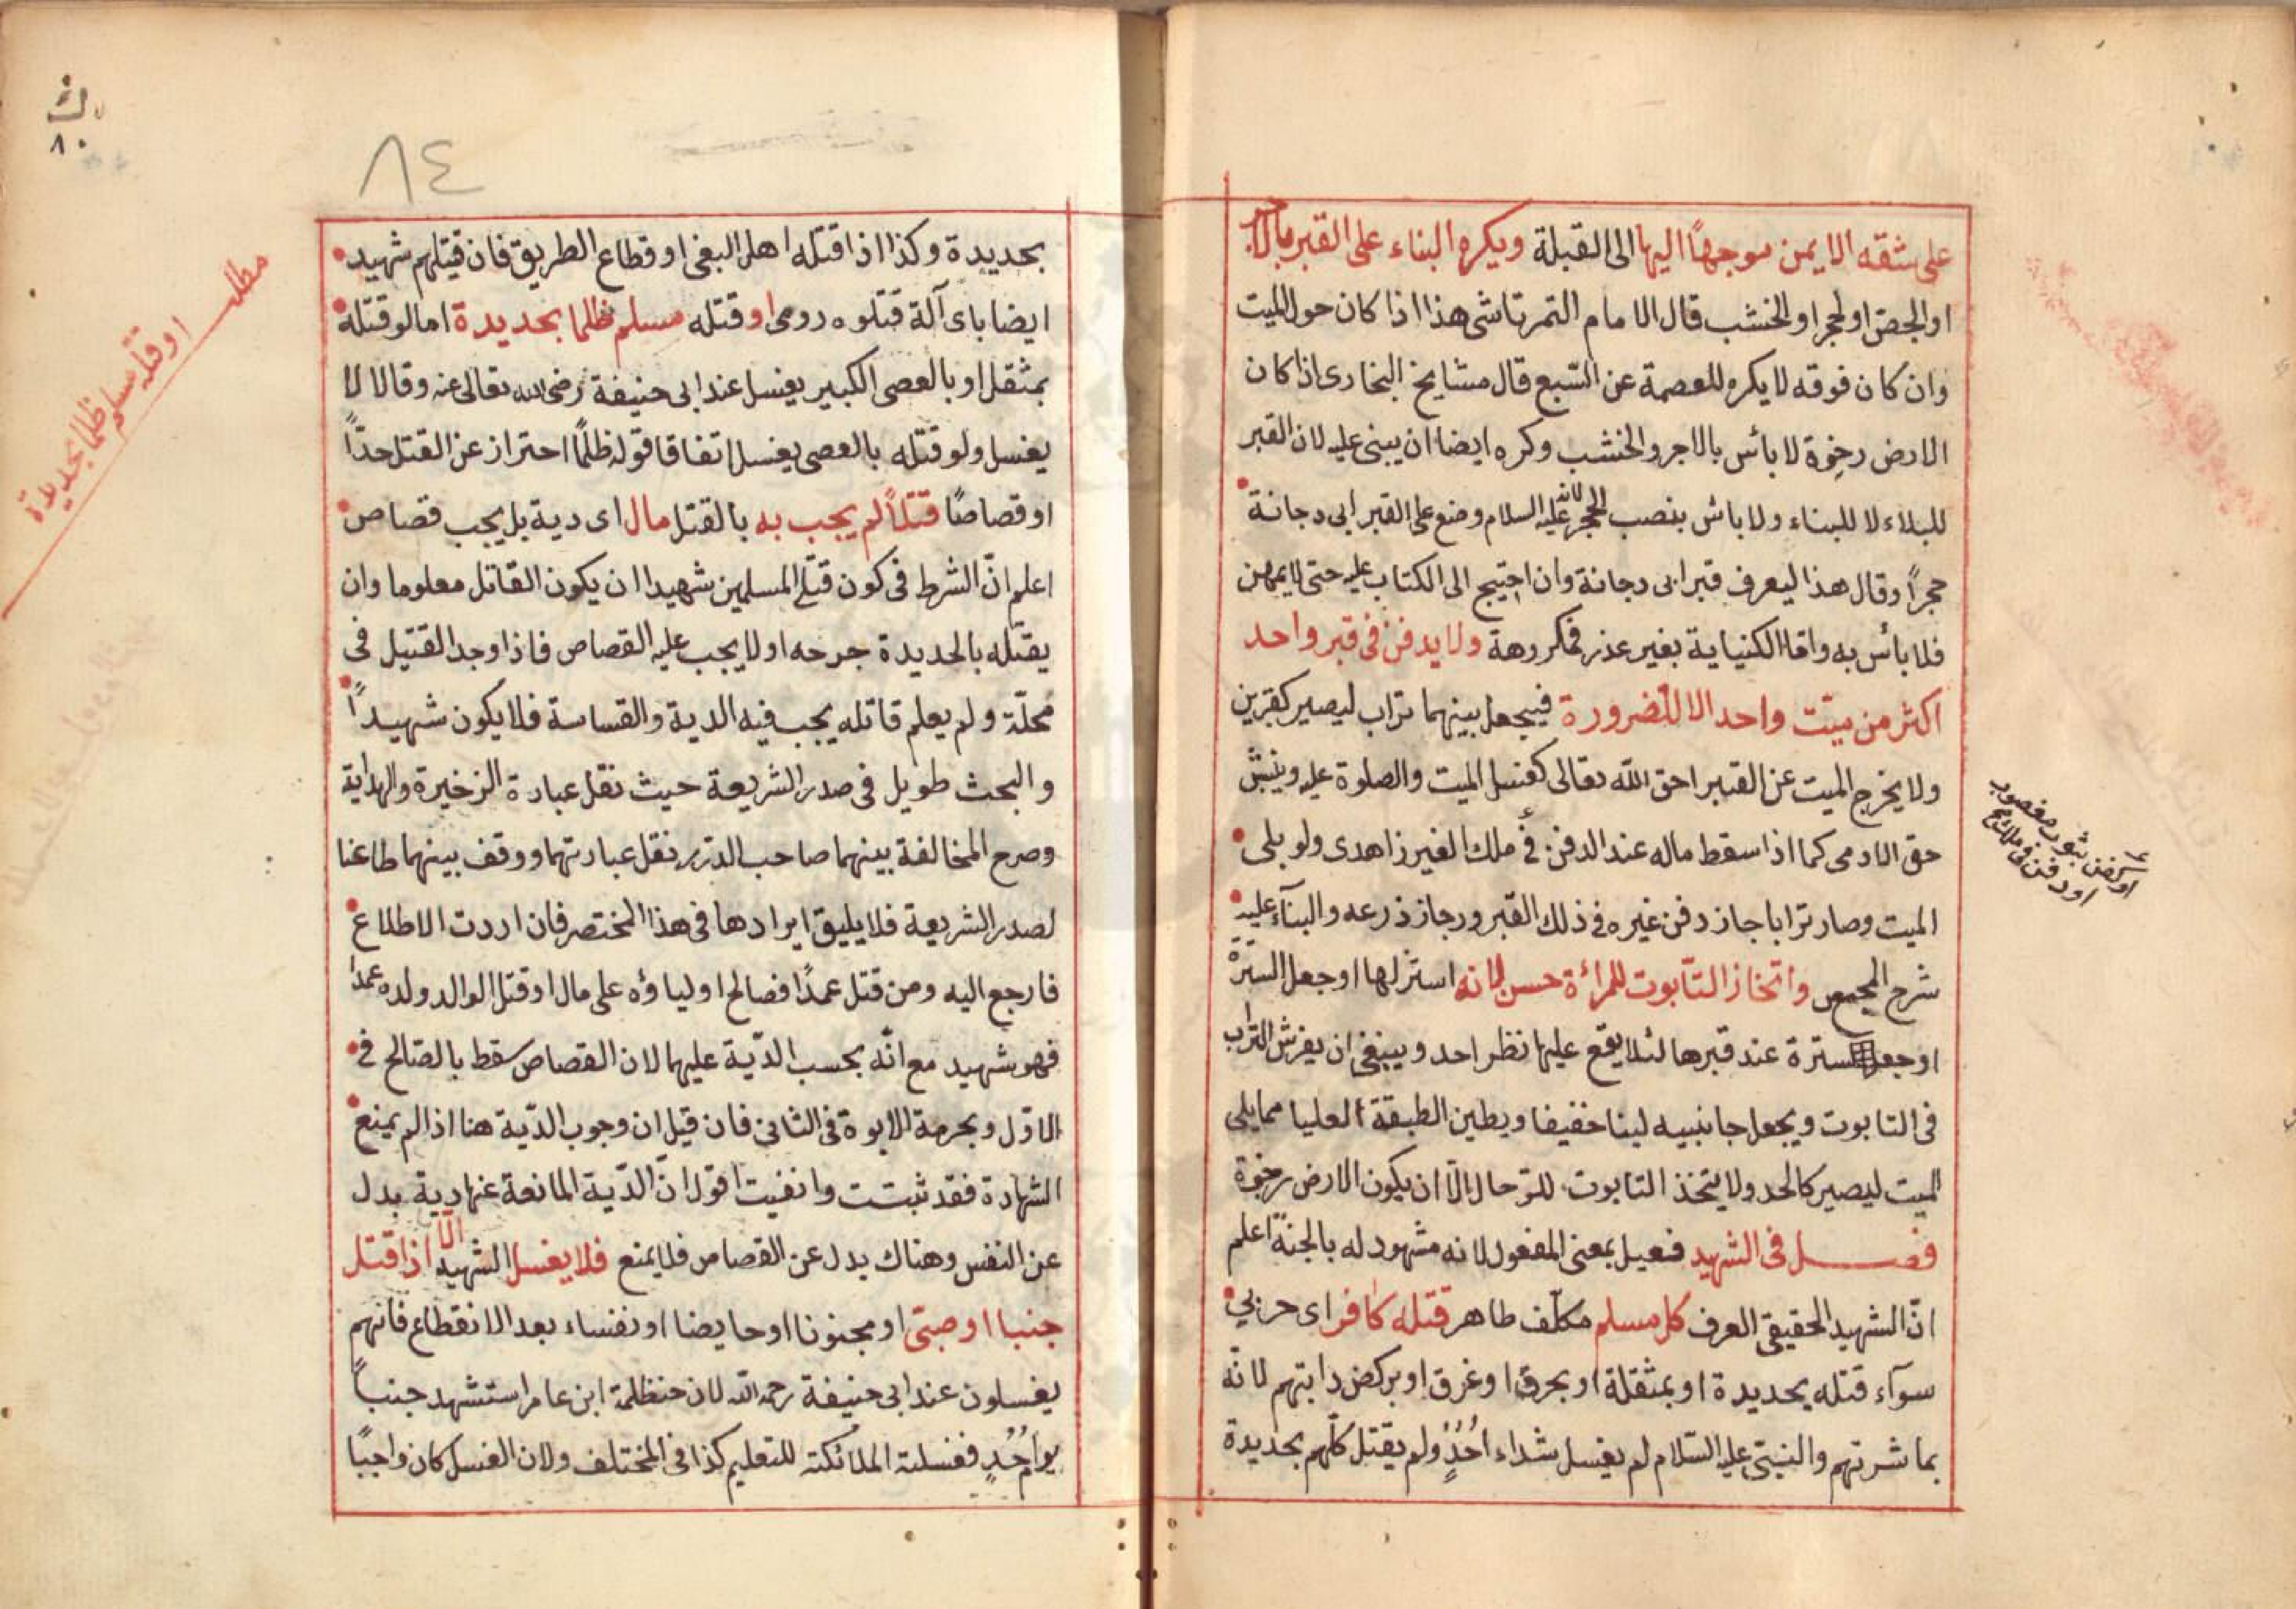 على شقه الايمن موجهاً اليها الى القبلة ويكره البناء على القبر بالاجر
او الجص او لحجر او الخشب قال الامام التمرتاشى هذا اذا كان حول الميت
وان كان فوقه لا يكره للعصمة عن السّبع قال مشايخ البخارى اذا كان
الارض رخوة لا بائس بالاجر والخشب وكره ايضا ان يبنى عليه لان القبر
للبلاء لا للبناء ولا باش بنصب الحجر لانه عليه السلام وضع على القبر ابى دجانة
حجراً وقال هذا ليعرف قبر ابى دجانة وان احتيج الى الكتاب عليه حتى لا يمهن
فلا بائس به واما الكنياية بغير عذر فمكروهة ولا يدفن فى قبر واحد
اكثر من ميّت واحد الا للضرورة فيجعل بينهما تراب ليصير كقبرين
ولا يخرج الميت عن القبر احق الله تعالى كغسل الميت والصلوة عليه وينبش
حق الادمى كما اذا سقط ماله عند الدفن فى ملك الغير زاهدى ولو بلى
الميت وصار ترابا جاز دفن غيره فى ذلك القبر ورجاز ذرعه والبنآء عليه
شرح المجمع واتخاز التّابوت للمرائة حسن لانه استر لها او جعل السترة
او جعل سترة عند قبرها لئلا يقع عليها نظر احد وينبغى ان يفرش التراب
فى التابوت ويجعل جانبيه لبنا خفيفا ويطين الطبقة العليا مما يلى
الميت ليصير كالحد ولا يتخذ التابوت للرّحال الاّ ان يكون الارض رخوة
فصل فى الشهيد فعيل بمعنى المفعول لانه مشهود له بالجنّة اعلم
انّ الشهيد الحقيقى العرف كل مسلم مكلّف طاهر قتله كافر اى حربي
سوآء قتله بحديدة او بمثقلة او بحرق او غرق او بركض دابتهم لانّه
بما شرتهم والنبىّ عليه السّلام لم يغسل شداء اُحُدٍ ولم يقتل كلّهم بحديدة
او كفن بثوب مغصوب
او دفن فى ملك
٨٠
٨٤
بحديدة وكذا اذا قتله اهل البغى او قطاع الطريق فان قتيلهم شهيد
ايضا باى آلة قتلوه رومى او قتله مسلم ظلما بحديدة اما لو قتله
بمثقل او بالعصى الكبير يغسل عند ابى حنيفة رضى الله تعالى عنه وقالا لا
يغسل ولو قتله بالعصى يغسل اتفاقا قوله ظلماً احتراز عن القتل حدّاً
او قصاصًا قتلاً لم يجب به بالقتل مال اى دية بل يجب قصاص
اعلم انّ الشرط فى كون قتيل المسلمين شهيدا ان يكون القاتل معلوما وان
يقتله بالحديدة جرحه او لا يجب عليه القصاص فاذا وجد القتيل فى
محلّة ولم يعلم قاتله يجب فيه الدية والقسامة فلا يكون شهيداً
والبحث طويل فى صدر الشريعة حيث نقل عبارة الزخيرة والهداية
وصرح المخالفة بينهما صاحب الدرر نقل عبارتهما ووقف بينهما طاعنا
لصدر الشريعة فلا يليق ايرادها فى هذا المختصر فان اردت الاطلاع
فارجع اليه ومن قتل عمدًا فصالح اولياؤه على مال او قتل الوالد ولده عمدا
فهو شهيد مع انّه بحسب الدّية عليهما لان القصاص سقط بالصّالح فى
الاوّل وبحرمة الابوة فى الثانى فان قيل ان وجوب الدّية هنا اذا لم يمنع
الشهادة فقد ثبتت وانفيت اقول انّ الدّية المانعة عنها دية بدل
عن النفس وهناك بدل عن القصاص فلا يمنع فلا يغسل الشهيد الّا اذا قتل
جنبا او صبىّ او مجنونا او حايضا او نفساء بعد الانقطاع فانّهم
يغسلون عند ابى حنيفة رحمه الله لان حنظلمة ابن عامر استشهد جنباً
يوم اُحُدٍ فغسلته الملائكته للتعليم كذا فى المختلف ولان الغسل كان واجبًا
مطلب
او قتله مسلم ظلما بحديدة